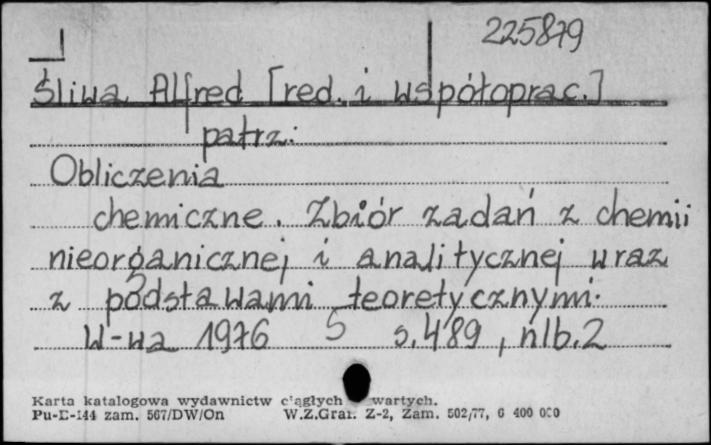 225879
Śliwa Alfred [red. i współoprac.]
patrz:
Obliczenia
chemiczne. Zbiór zadań z chemii
nieorganicznej i analitycznej wraz
z podstawami teoretycznymi.
W-wa 1976 S s. 489, nlb. 2
Karta katalogowa wydawnictw ciągłych wartych.
Pu-E-144 zam. 567/DW/On W.Z.Graf. Z-2, Zam. 502/77, 6 400 000